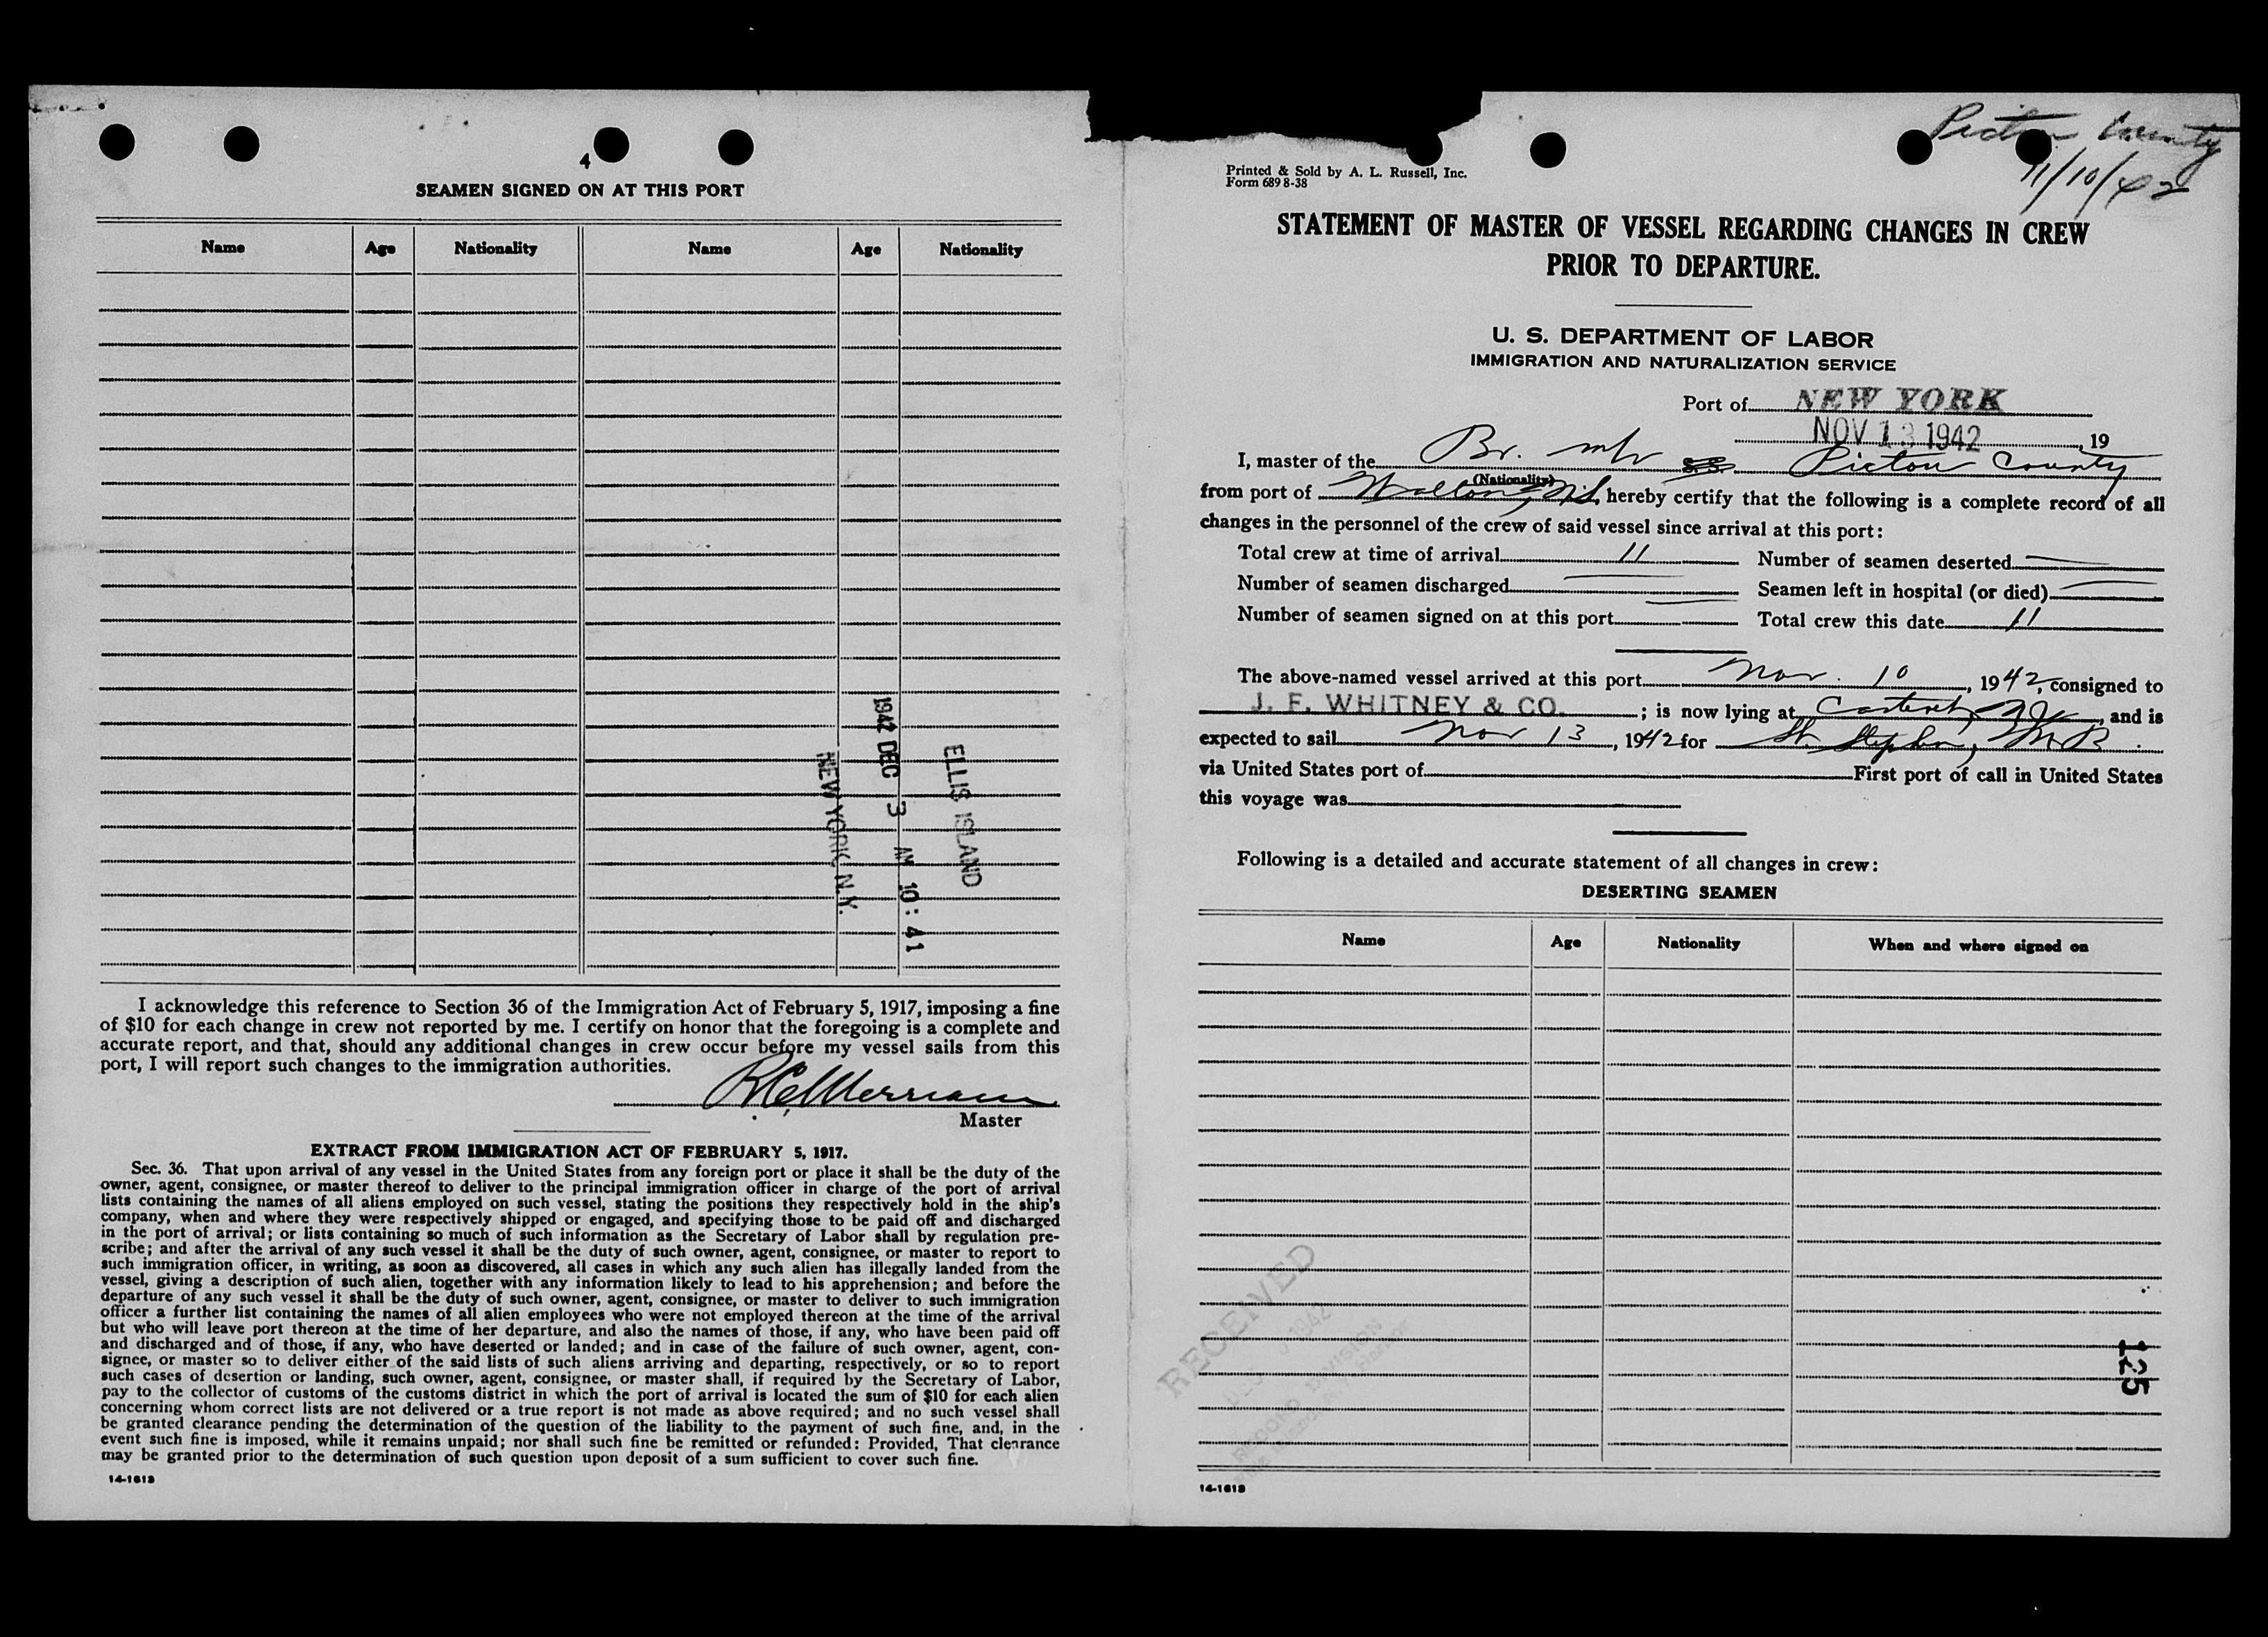 4
SEAMEN SIGNED ON AT THIS PORT
Name Age Nationality Name Age Nationality
1942 DEC 3 AM 10:41
ELLIS ISLAND
NEW YORK N.Y.
I acknowledge this reference to Section 36 of the Immigration Act of February 5, 1917, imposing a fine
of $10 for each change in crew not reported by me. I certify on honor that the foregoing is a complete and
accurate report, and that, should any additional changes in crew occur before my vessel sails from this
port, I will report such changes to the immigration authorities.
Merriam
Master
EXTRACT FROM IMMIGRATION ACT OF FEBRUARY 5, 1917.
Sec. 36. That upon arrival of any vessel in the United States from any foreign port or place it shall be the duty of the
owner, agent, consignee, or master thereof to deliver to the principal immigration officer in charge of the port of arrival
lists containing the names of all aliens employed on such vessel, stating the positions they respectively hold in the ship's
company, when and where they were respectively shipped or engaged, and specifying those to be paid off and discharged
in the port of arrival; or lists containing so much of such information as the Secretary of Labor shall by regulation pre-
scribe; and after the arrival of any such vessel it shall be the duty of such owner, agent, consignee, or master to report to
such immigration officer, in writing, as soon as discovered, all cases in which any such alien has illegally landed from the
vessel, giving a description of such alien, together with any information likely to lead to his apprehension; and before the
departure of any such vessel it shall be the duty of such owner, agent, consignee, or master to deliver to such immigration
officer a further list containing the names of all alien employees who were not employed thereon at the time of the arrival
but who will leave port thereon at the time of her departure, and also the names of those, if any, who have been paid off
and discharged and of those, if any, who have deserted or landed; and in case of the failure of such owner, agent, con-
signee, or master so to deliver either of the said lists of such aliens arriving and departing, respectively, or so to report
such cases of desertion or landing, such owner, agent, consignee, or master shall, if required by the Secretary of Labor,
pay to the collector of customs of the customs district in which the port of arrival is located the sum of $10 for each alien
concerning whom correct lists are not delivered or a true report is not made as above required; and no such vessel shall
be granted clearance pending the determination of the question of the liability to the payment of such fine, and, in the
event such fine is imposed, while it remains unpaid; nor shall such fine be remitted or refunded: Provided, That clearance
may be granted prior to the determination of such question upon deposit of a sum sufficient to cover such fine.
14-1613
Pictou County
11/10/42
Printed & Sold by A. L. Russell, Inc.
Form 689 8-38
STATEMENT OF MASTER OF VESSEL REGARDING CHANGES IN CREW
PRIOR TO DEPARTURE.
U. S. DEPARTMENT OF LABOR
IMMIGRATION AND NATURALIZATION SERVICE
Port of NEW YORK
NOV 13 1942, 19
I, master of the Br. S.S. Pictou County
(Nationality)
from port of Walton, N.S. hereby certify that the following is a complete record of all
changes in the personnel of the crew of said vessel since arrival at this port:
Total crew at time of arrival 11 Number of seamen deserted —
Number of seamen discharged — Seamen left in hospital (or died) —
Number of seamen signed on at this port — Total crew this date 11
The above-named vessel arrived at this port Nov. 10, 1942, consigned to
J. F. WHITNEY & CO.; is now lying at Carteret, NJ, and is
expected to sail Nov 13, 1942 for St. Stephen, N.B.
via United States port of First port of call in United States
this voyage was
Following is a detailed and accurate statement of all changes in crew:
DESERTING SEAMEN
Name Age Nationality When and where signed on
RECEIVED
DEC 1942
RECORD DIVISION
125
14-1613